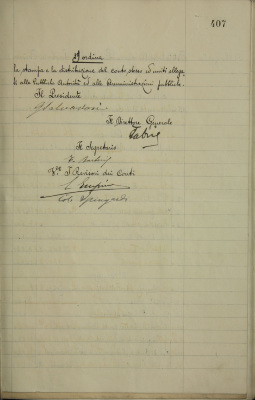 407
Ordina
la stampa e la distribuzione del conto stesso ed uniti allega
ti alle Pubbliche Autorità ed alle Amministrazioni pubbliche.
Il Presidente
Il Direttore Generale
Fabris
Il Segretario
I Revisori dei Conti